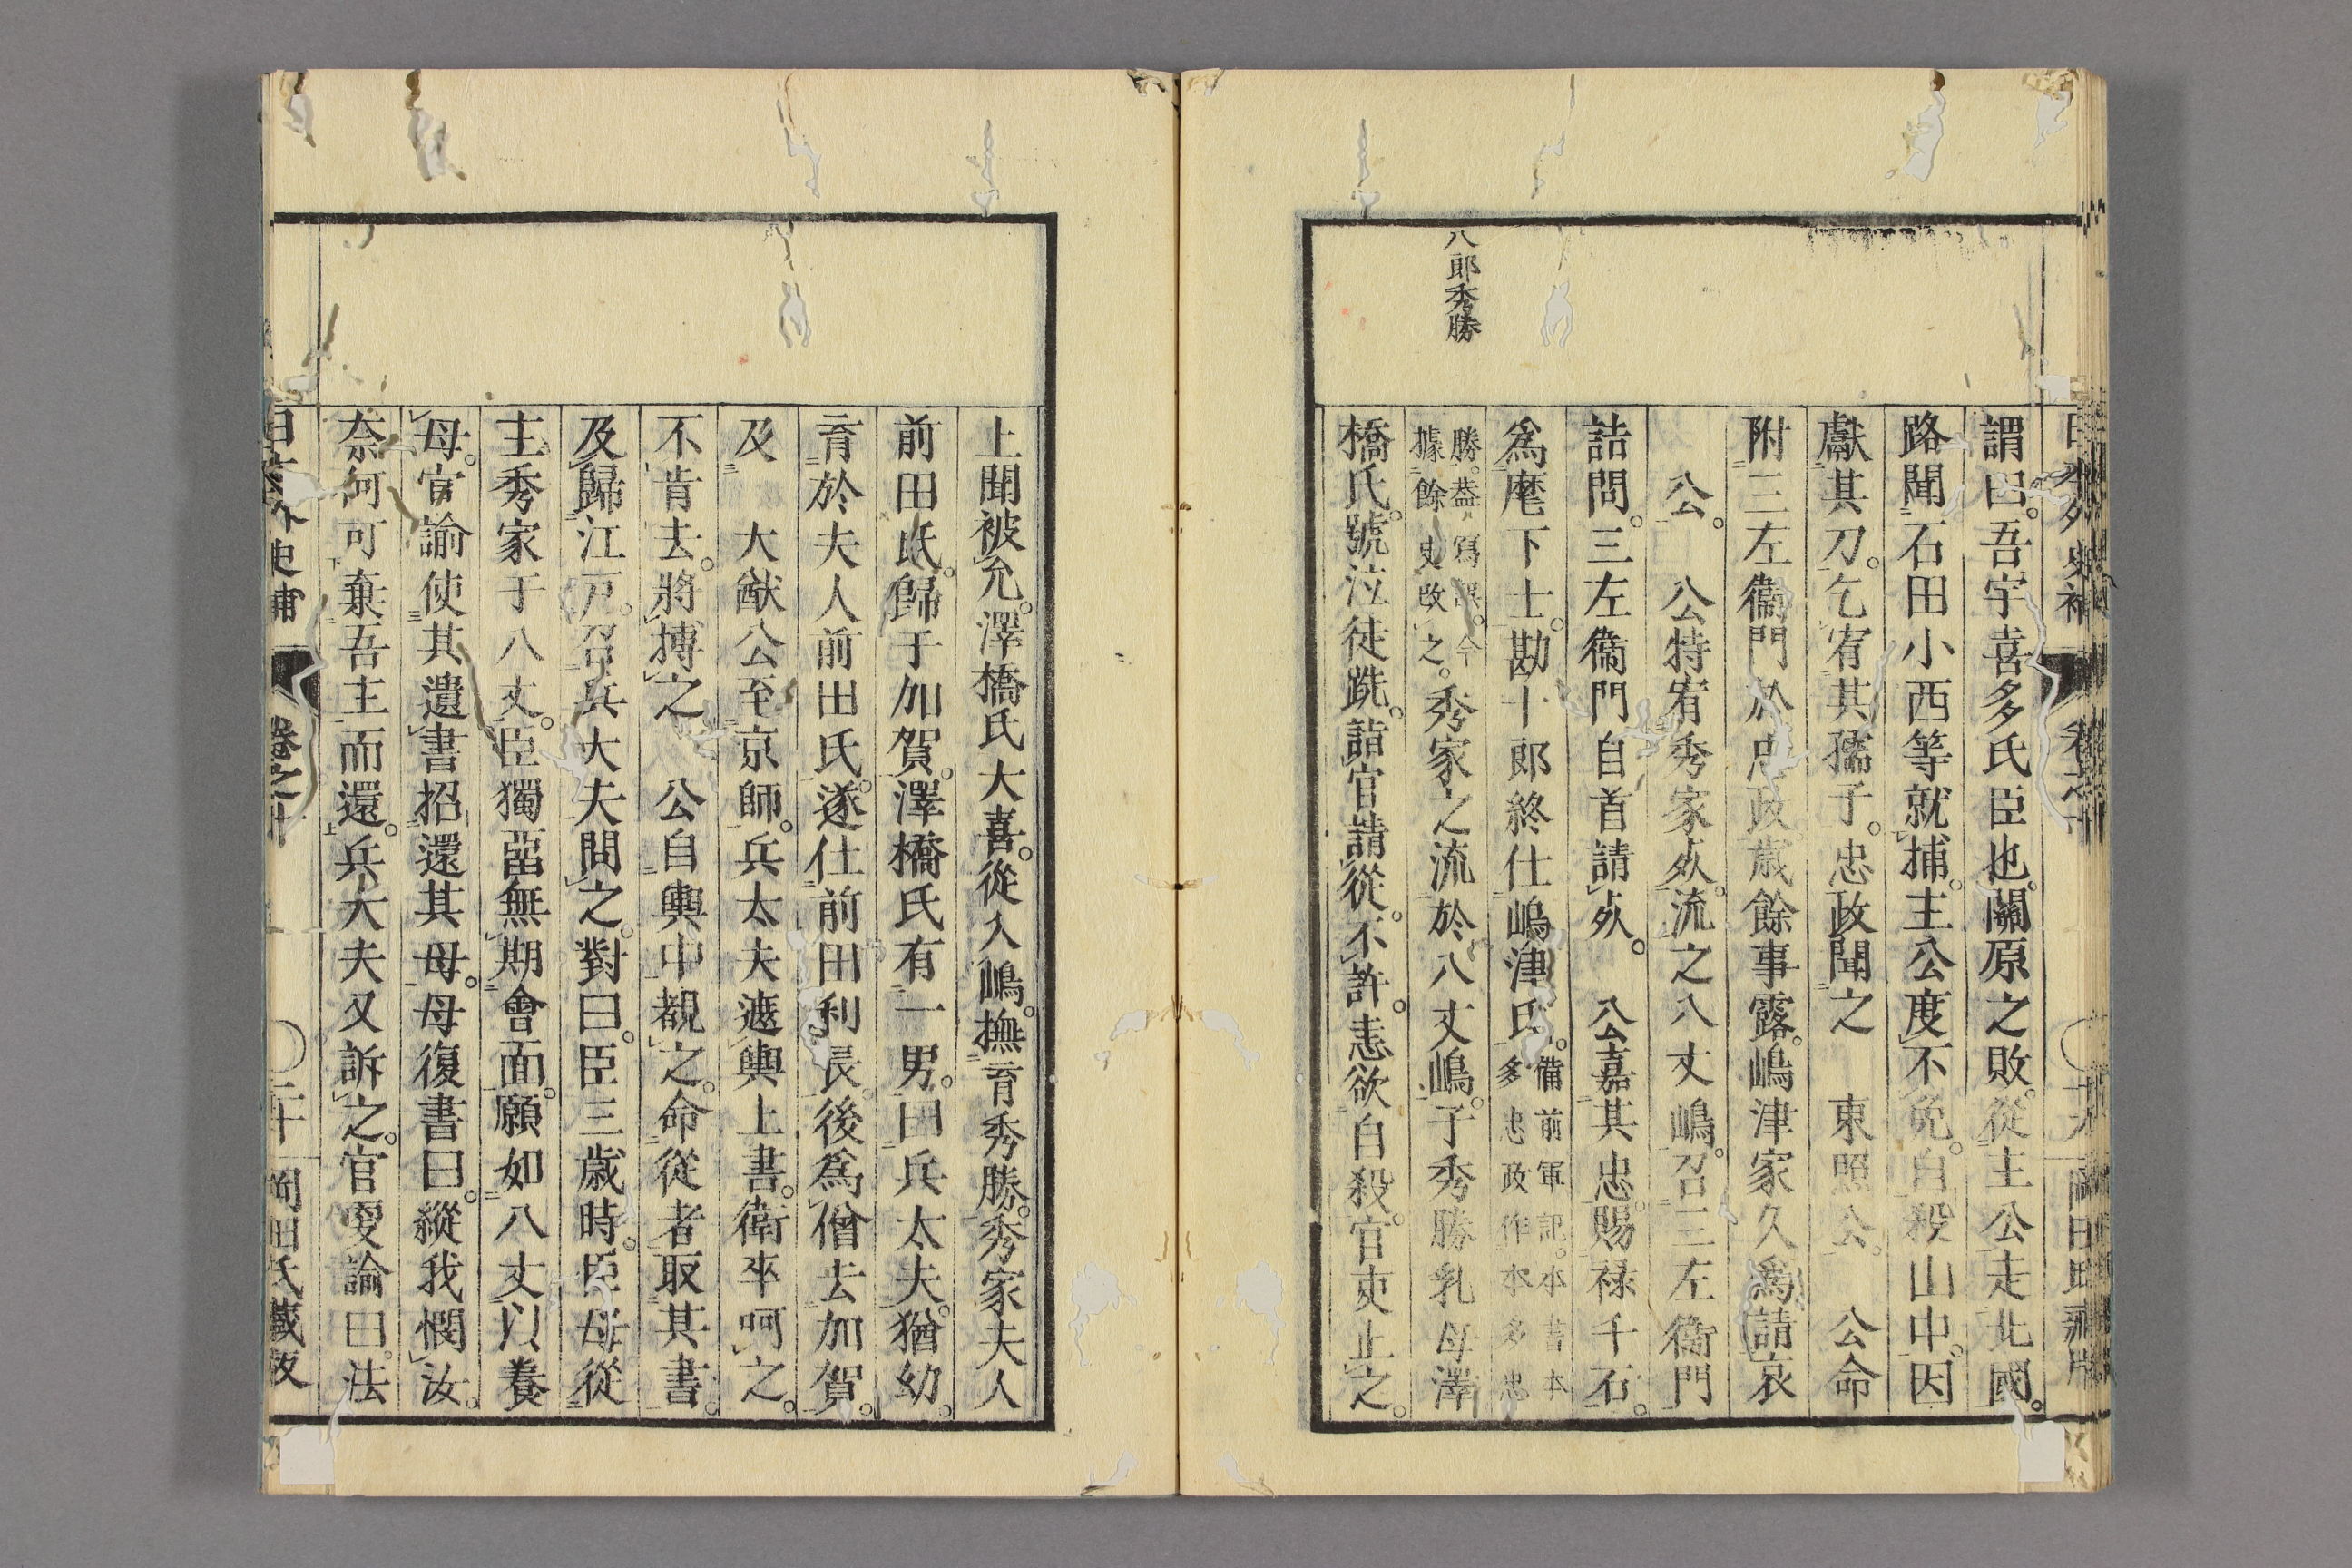 謂曰。吾宇喜多氏臣也。關原之敗。從主公走北國。
路聞石田小西等就捕。主公度不免。自殺山中。因
獻其刀。乞宥其孺子。忠政聞之 東照公。 公命
附三左衞門於忠政歲餘事露。嶋津家久爲請哀
公。 公特宥秀家死。流之八丈嶋。召三左衞門
詰問。三左衞門自首請死。 公嘉其忠。賜祿千石。
爲麾下士。勘十郎終仕嶋津氏。備前軍記。本書本多忠政作本多忠
勝。蓋寫誤。今據餘史改之。秀家之流於八丈嶋。子秀勝乳母澤
八郎秀勝
橋氏。號泣徒跣。詣官請從。不許。恚欲自殺。官吏止之。
上聞被允。澤橋氏大喜。從入嶋。撫育秀勝。秀家夫人
前田氏。歸于加賀。澤橋氏有一男。曰兵太夫。猶幼。
育於夫人前田氏。遂仕前田利長。後爲僧去加賀。
及 大猷公至京師。兵太夫遮輿上書。衞卒呵之。
不肯去。將搏之 公自輿中覩之。命從者取其書。
及歸江戶。召兵大夫問之。對曰。臣三歲時。臣母從
主秀家于八丈。臣獨畱無期會面。願如八丈以養
母。官諭使其遺書招還其母。母復書曰。縱我憫汝。
奈何可棄吾主而還。兵大夫又訴之。官更諭曰。法
日本外史補 卷之十 二十 岡田氏藏版